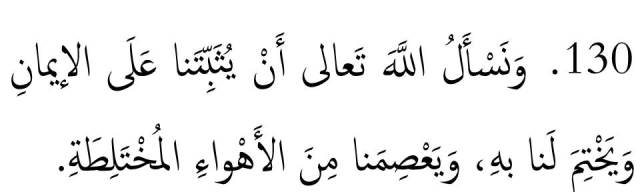 130. وَنَسْأَلُ اللَّهَ تَعالى أَنْ يُثَبِّتَنا عَلَى الإيمانِ
وَيَخْتِمَ لَنا بهِ، وَيَعْصِمَنا مِنَ الأَهْواءِ المُخْتَلِطَةِ.